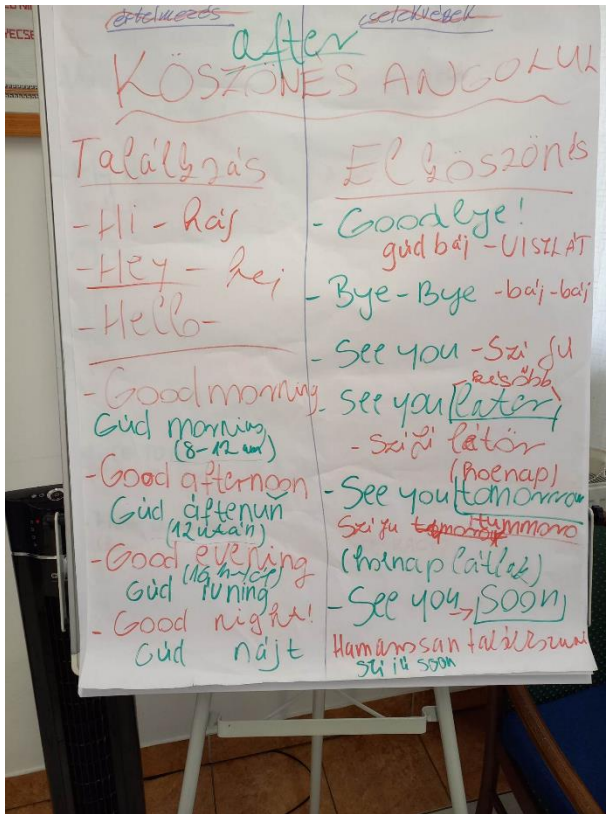 értelmezés
cselekvések
after
KÖSZÖNÉS ANGOLUL
Találkozás
- Hi - háj
- Hey - hej
- Hello -
- Good morning
Gúd morning
(8-12 am)
- Good afternoon
Gúd áftenun
(12 után)
- Good evening
Gúd ivning
- Good night!
Gúd nájt
Elköszönés
- Goodbye!
gúd báj - VISZLÁT
- Bye-Bye - báj-báj
- See you - Szi ju
később
- See you later
- Szi ju létör
(holnap)
- See you tomorrow
Szi ju tummoro
(holnap látlak)
- See you → soon
Hamarosan találkozunk
szi jú soon